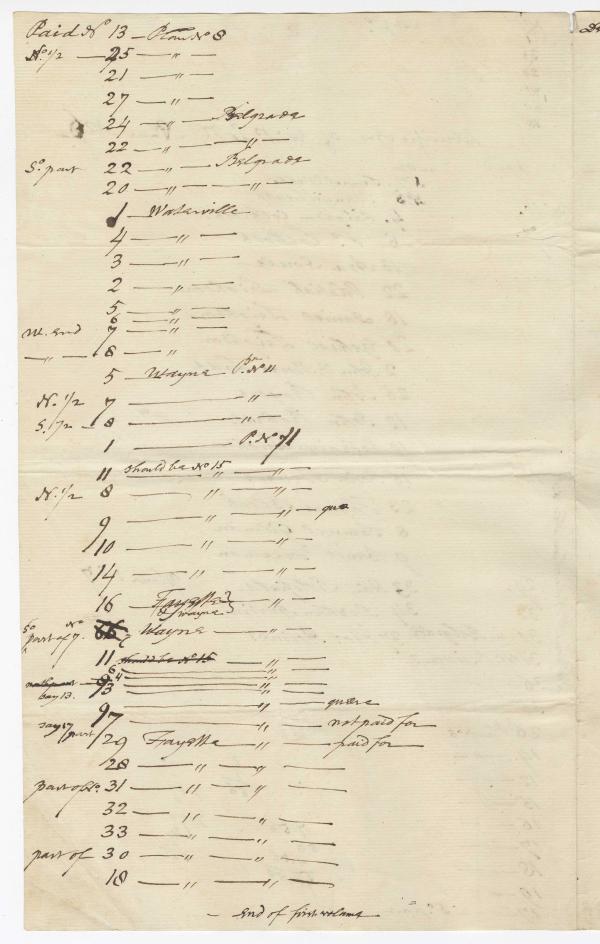 Paid No 13 — Plan No 8
No. 1/2 — 25 — " —
21 — " —
27 — " —
24 — " — Belgrade
22 — " — " —
So. part 22 — " — Belgrade
20 — " — " —
1 — Waterville
4 — " —
3 — " —
2 — " —
5 — " —
6 — " —
W. End 7 — " —
— " — 8 — "
5 — Wayne Pn. No 11
N. 1/2 7 — " —
S. 1/2 — 8 — " —
1 — P. No 11
11 should be No 15 " — " —
N. 1/2 8 — " — " —
9 — " — " — quæ
10 — " — " —
14 — " — " —
16 — Fayette } " —
& Wayne }
So part of No 7. Wayne — " —
11 should be No 15 — " —
6 — " —
4 — " —
say 13. 13 — " —
97 — " — quære
say 17 — " — not paid for
part 29 Fayette " — paid for —
28 — " — " —
part of No. 31 — " — " —
32 — " — " —
33 — " — " —
part of 30 — " — " —
18 — " — " —
— End of first volume